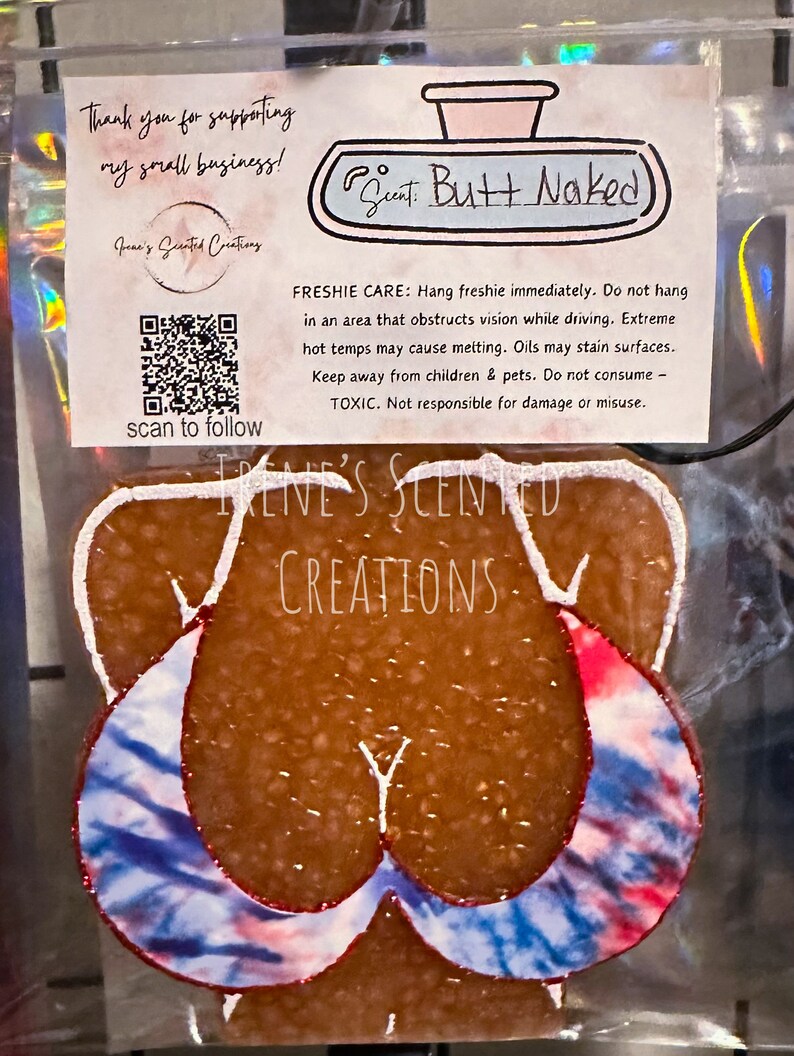 Thank you for supporting
my small business!
Irene's Scented Creations
scan to follow
Scent: Butt Naked
FRESHIE CARE: Hang freshie immediately. Do not hang
in an area that obstructs vision while driving. Extreme
hot temps may cause melting. Oils may stain surfaces.
Keep away from children & pets. Do not consume –
TOXIC. Not responsible for damage or misuse.
IRENE'S SCENTED
CREATIONS